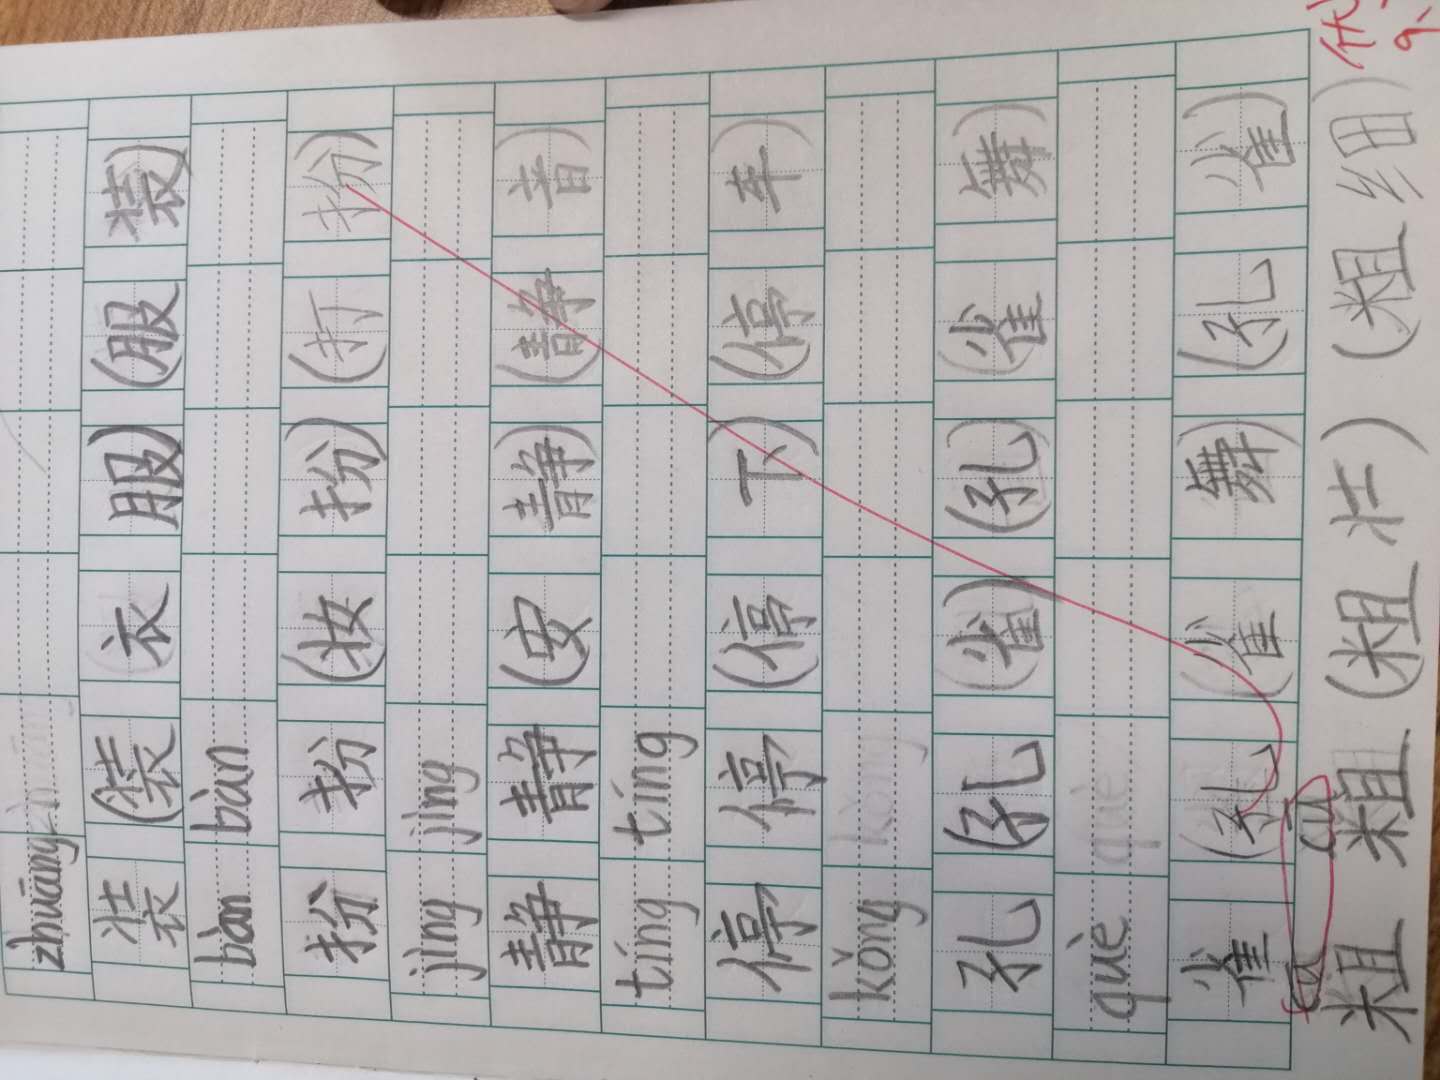 zhuāng
装(装衣服)(服装)
bàn bàn
扮 扮(妆扮)(打扮)
jìng jìng
静 静(安静)(静音)
tíng tíng
停 停(停下)(停车)
kǒng kǒng
孔(孔雀)(孔雀舞)
què què
雀(孔(雀舞)(孔雀)
cū cū
粗 粗(粗壮)(粗细)